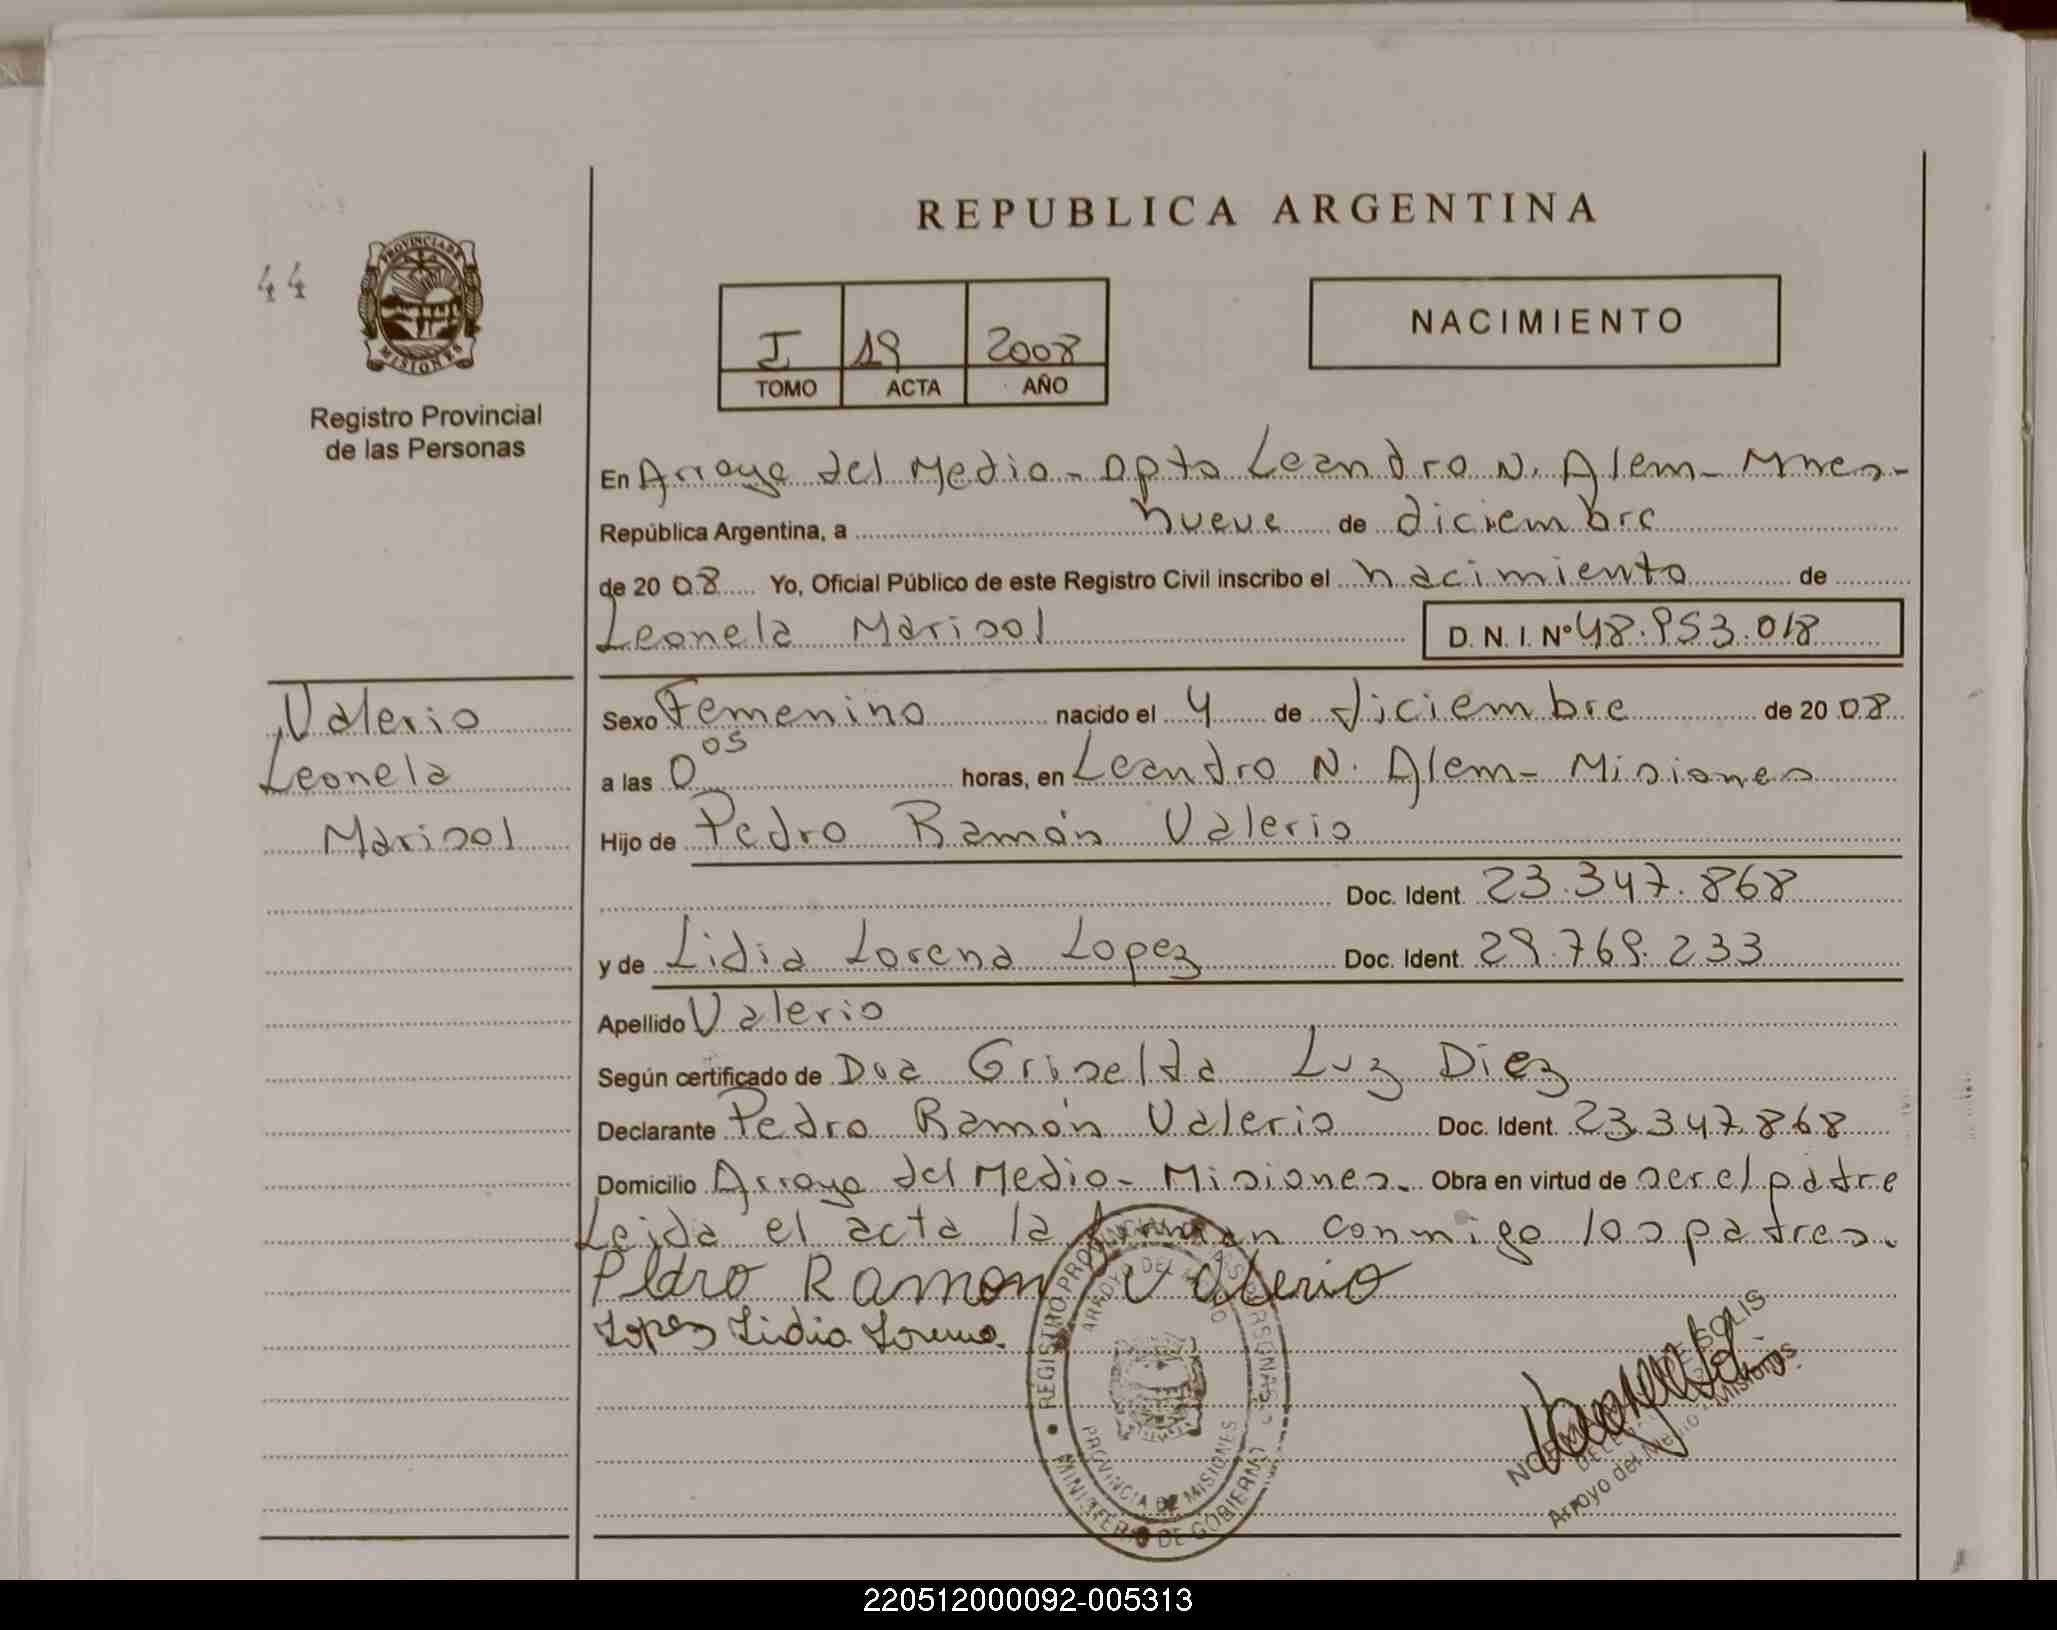 REPUBLICA ARGENTINA
44
PROVINCIA DE
MISIONES
Registro Provincial
de las Personas
I 19 2008
TOMO ACTA AÑO
NACIMIENTO
En Arroyo del Medio - Dpto Leandro N. Alem - Mnes -
República Argentina, a nueve de diciembre
de 20 08 Yo, Oficial Público de este Registro Civil inscribo el nacimiento de
Leonela Marisol D. N. I. Nº 48.953.018
Valerio
Leonela
Marisol
Sexo Femenino nacido el 4 de diciembre de 20 08
a las 0 05 horas, en Leandro N. Alem - Misiones
Hijo de Pedro Ramón Valerio
Doc. Ident. 23.347.868
y de Lidia Lorena Lopez Doc. Ident. 29.769.233
Apellido Valerio
Según certificado de Dra Griselda Luz Diez
Declarante Pedro Ramón Valerio Doc. Ident. 23.347.868
Domicilio Arroyo del Medio - Misiones. Obra en virtud de ser el padre
Leida el acta la firman conmigo los padres.
Pedro Ramon Valerio
Lopez Lidia Lorena.
REGISTRO PROVINCIAL DE LAS PERSONAS
ARROYO DEL MEDIO
PROVINCIA DE MISIONES
MINISTERIO DE GOBIERNO
SOLIS
Arroyo del Medio - Misiones
220512000092-005313